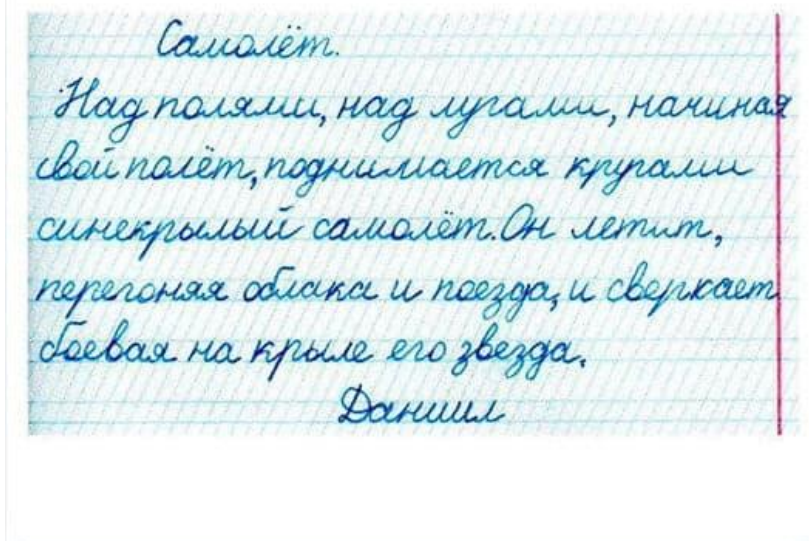 Самолёт.
Над полями, над лугами, начиная
свой полёт, поднимается кругами
синекрылый самолёт. Он летит,
перегоняя облака и поезда, и сверкает
боевая на крыле его звезда.
Даниил